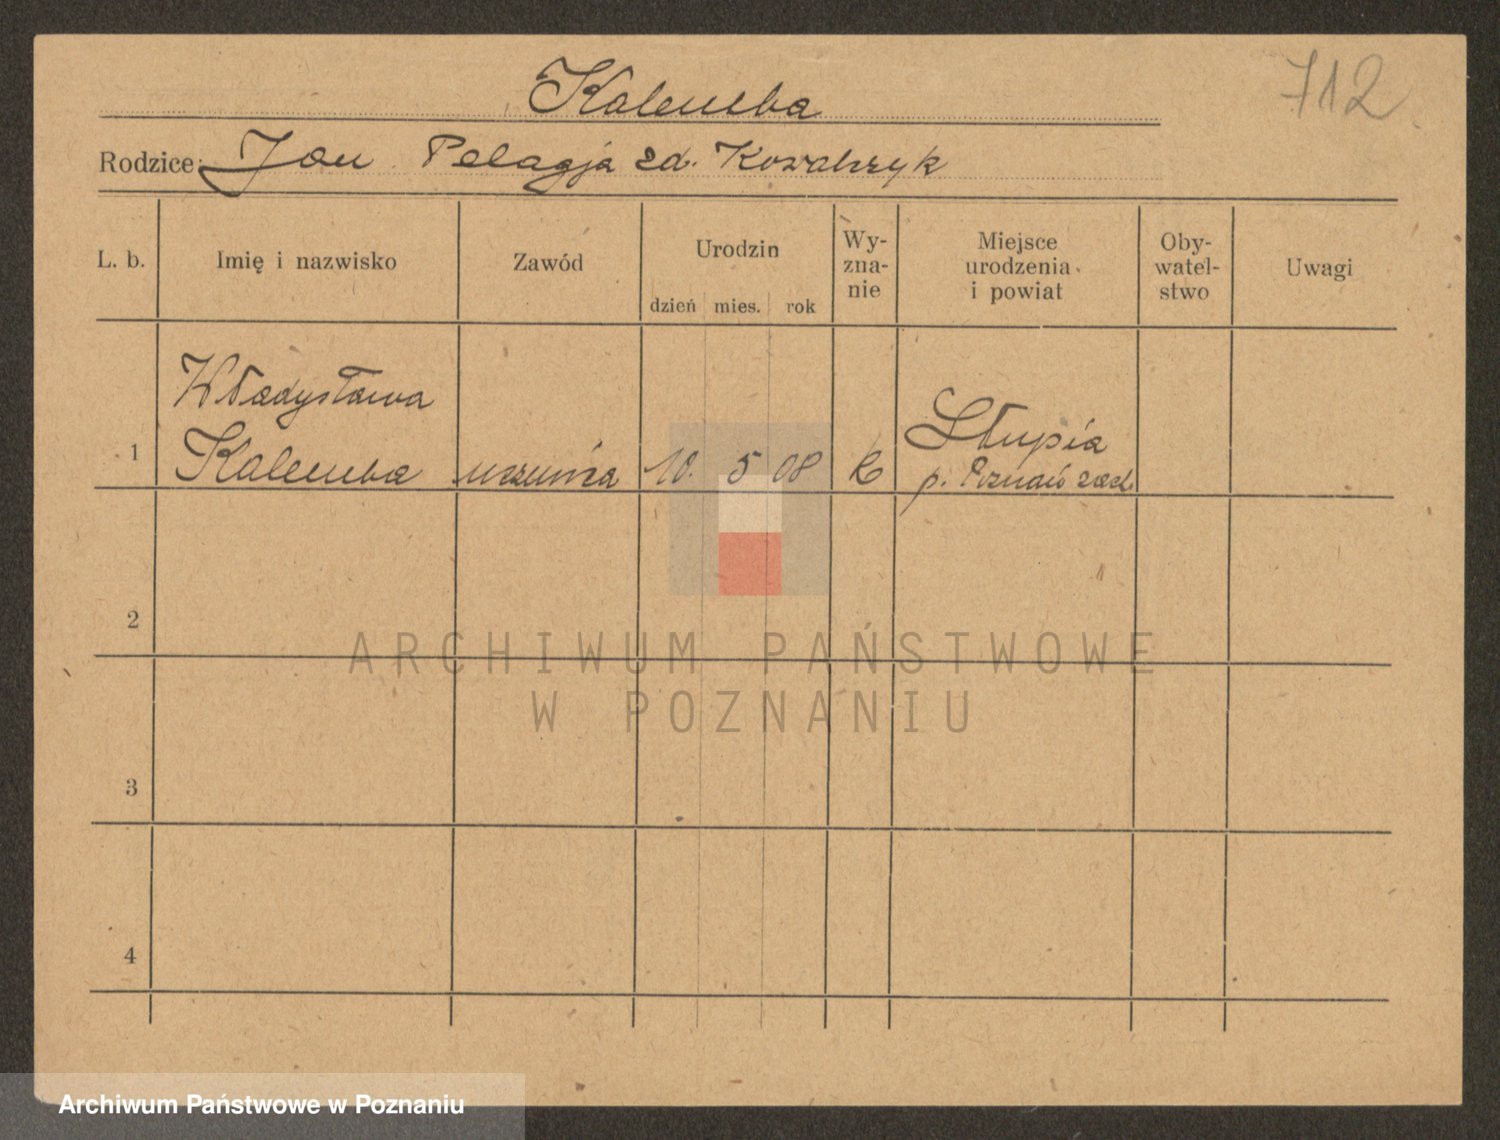 712
Kalemba
Rodzice: Jan Pelagja zd. Kowalczyk
L. b.
Imię i nazwisko
Zawód
Urodzin
dzień mies. rok
Wy-
zna-
nie
Miejsce
urodzenia
i powiat
Oby-
watel-
stwo
Uwagi
Władysława
1 Kalemba uczenica 10. 5 08 k Słupia
p. Poznań zach.
2
3
4
ARCHIWUM PAŃSTWOWE
W POZNANIU
Archiwum Państwowe w Poznaniu